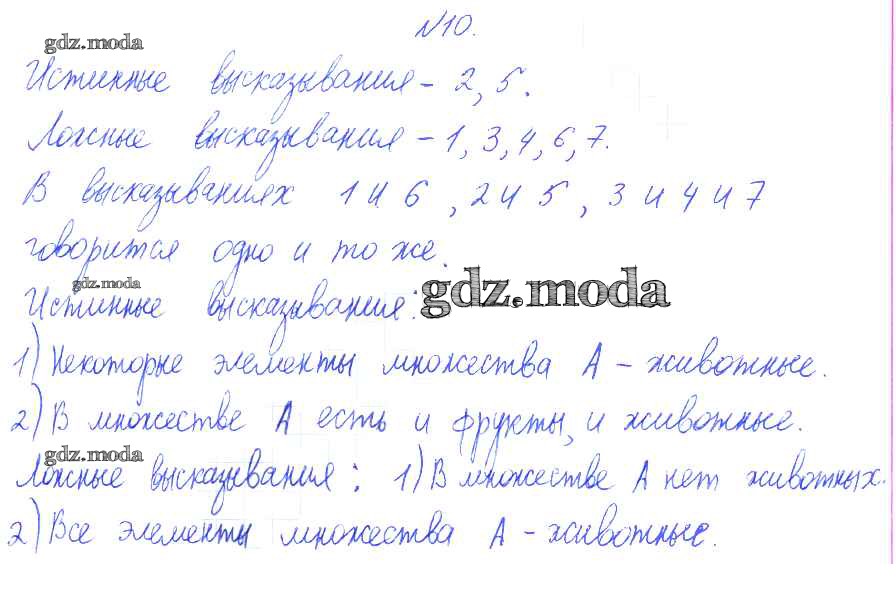 №10.
gdz.moda
Истинные высказывания - 2, 5.
Ложные высказывания - 1, 3, 4, 6, 7.
В высказываниях 1 и 6, 2 и 5, 3 и 4 и 7
говорится одно и то же.
gdz.moda
gdz.moda
Истинные высказывания:
1) Некоторые элементы множества А - животные.
2) В множестве А есть и фрукты, и животные.
gdz.moda
Ложные высказывания: 1) В множестве А нет животных.
2) Все элементы множества А - животные.